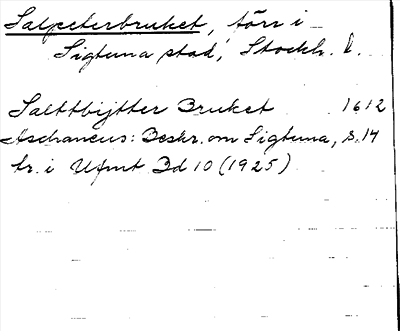 Salpeterbruket, förr i
Sigtuna stad, Stockh. l.
Salttbijtter Bruket 1612
Aschaneus: Beskr. om Sigtuna, s. 14
tr. i Ufmt Bd 10 (1925)